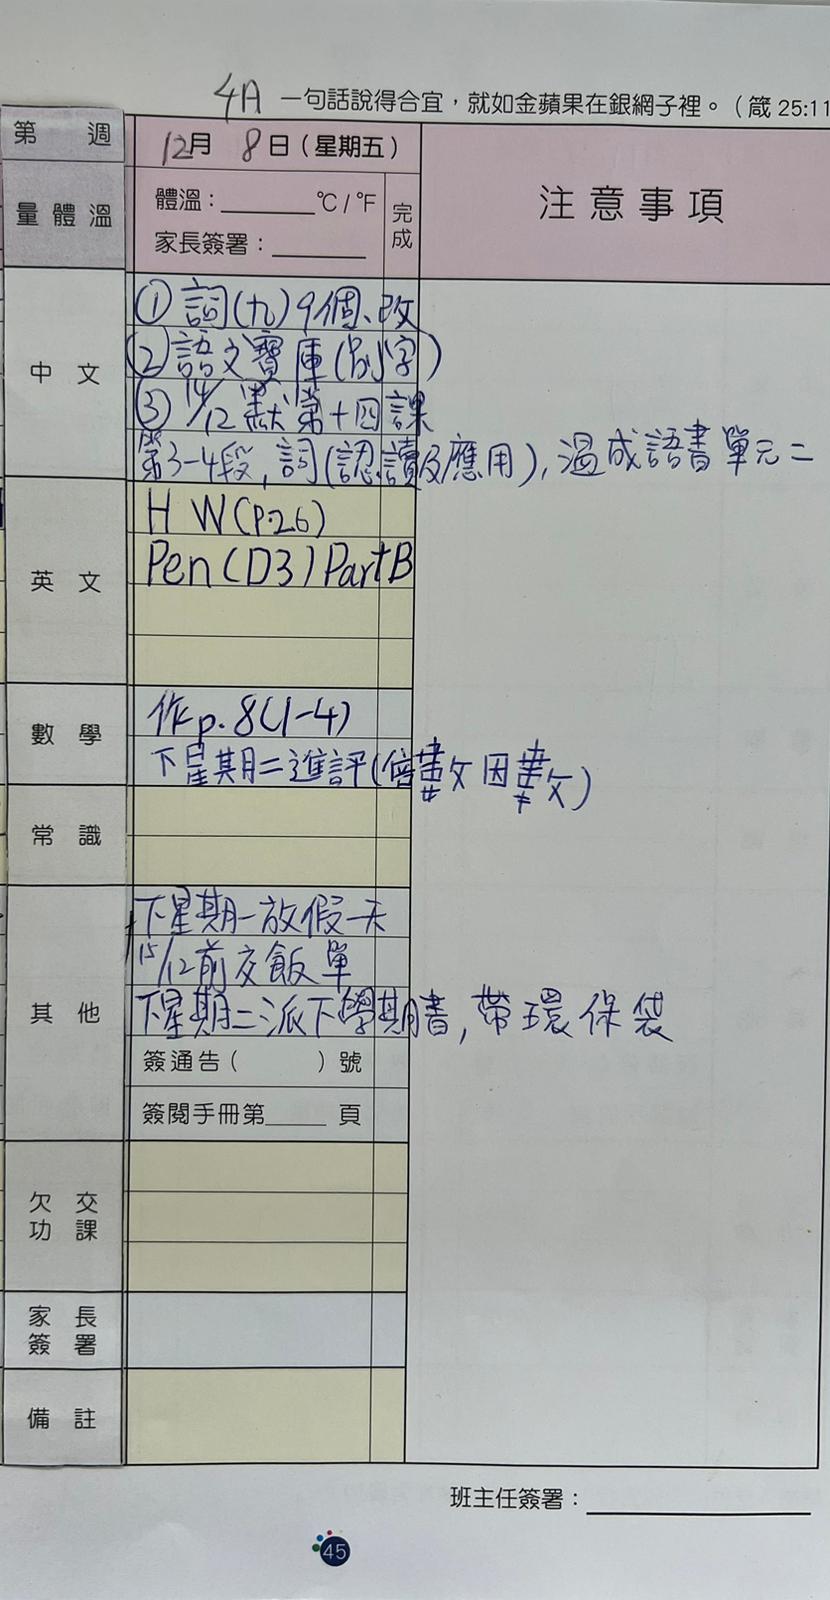 4A 一句話說得合宜，就如金蘋果在銀網子裡。（箴 25:11
第 週
12月 8日（星期五）
注意事項
量體溫
體溫：______℃/℉
家長簽署：______
完成
中文
① 詞(九)9個、改
② 語文寶庫(別字)
③ 14/12 默第十四課
第3-4段,詞(認讀及應用),溫成語書單元二
英文
HW(P.26)
Pen(D3)PartB
數學
作p.8(1-4)
下星期二進評(倍數 因數)
常識
其他
下星期一放假一天
15/12前交飯單
下星期二派下學期書,帶環保袋
簽通告（ ）號
簽閱手冊第_____頁
欠交功課
家長簽署
備註
班主任簽署：______
45